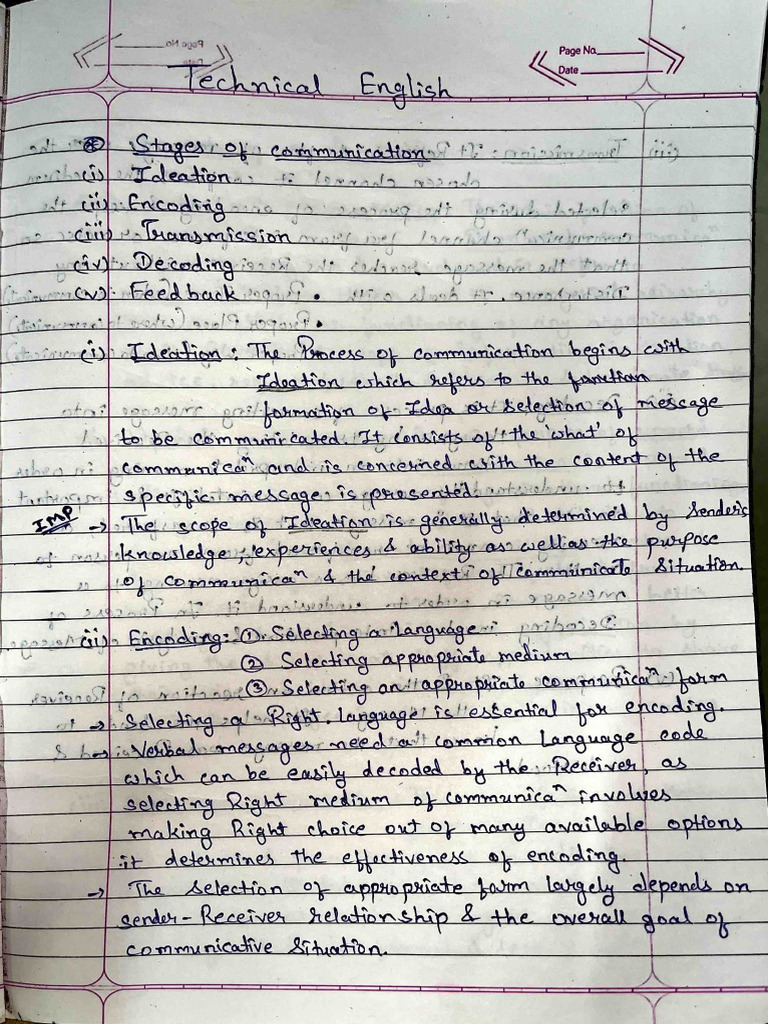 Page No.
Date
Technical English
⊛ Stages of communication
(i) Ideation
(ii) Encoding
(iii) Transmission
(iv) Decoding
(v) Feedback .
(i) Ideation : The Process of communication begins with
Ideation which refers to the
formation of Idea or selection of message
to be communicated. It consists of the 'what' of
communicaⁿ and is concerned with the content of the
specific message is presented.
IMP → The scope of Ideation is generally determined by Sender's
knowledge, experiences & ability as well as the purpose
of communicaⁿ & the context of communicate Situation.
(ii) Encoding: ① Selecting a Language
② Selecting appropriate medium
③ Selecting an appropriate communicaⁿ form
→ Selecting a Right Language is essential for encoding.
→ Verbal messages need a common Language code
which can be easily decoded by the Receiver, as
selecting Right medium of communicaⁿ involves
making Right choice out of many available options
it determines the effectiveness of encoding.
→ The selection of appropriate form largely depends on
sender-Receiver relationship & the overall goal of
communicative Situation.